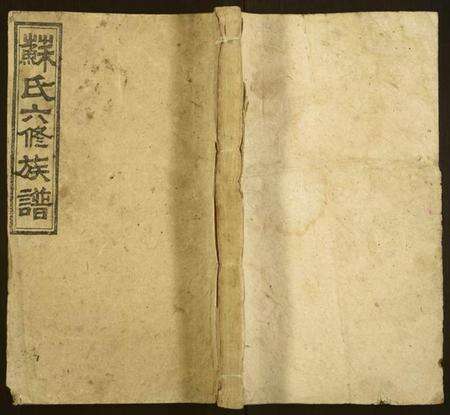 蘇氏六修族譜